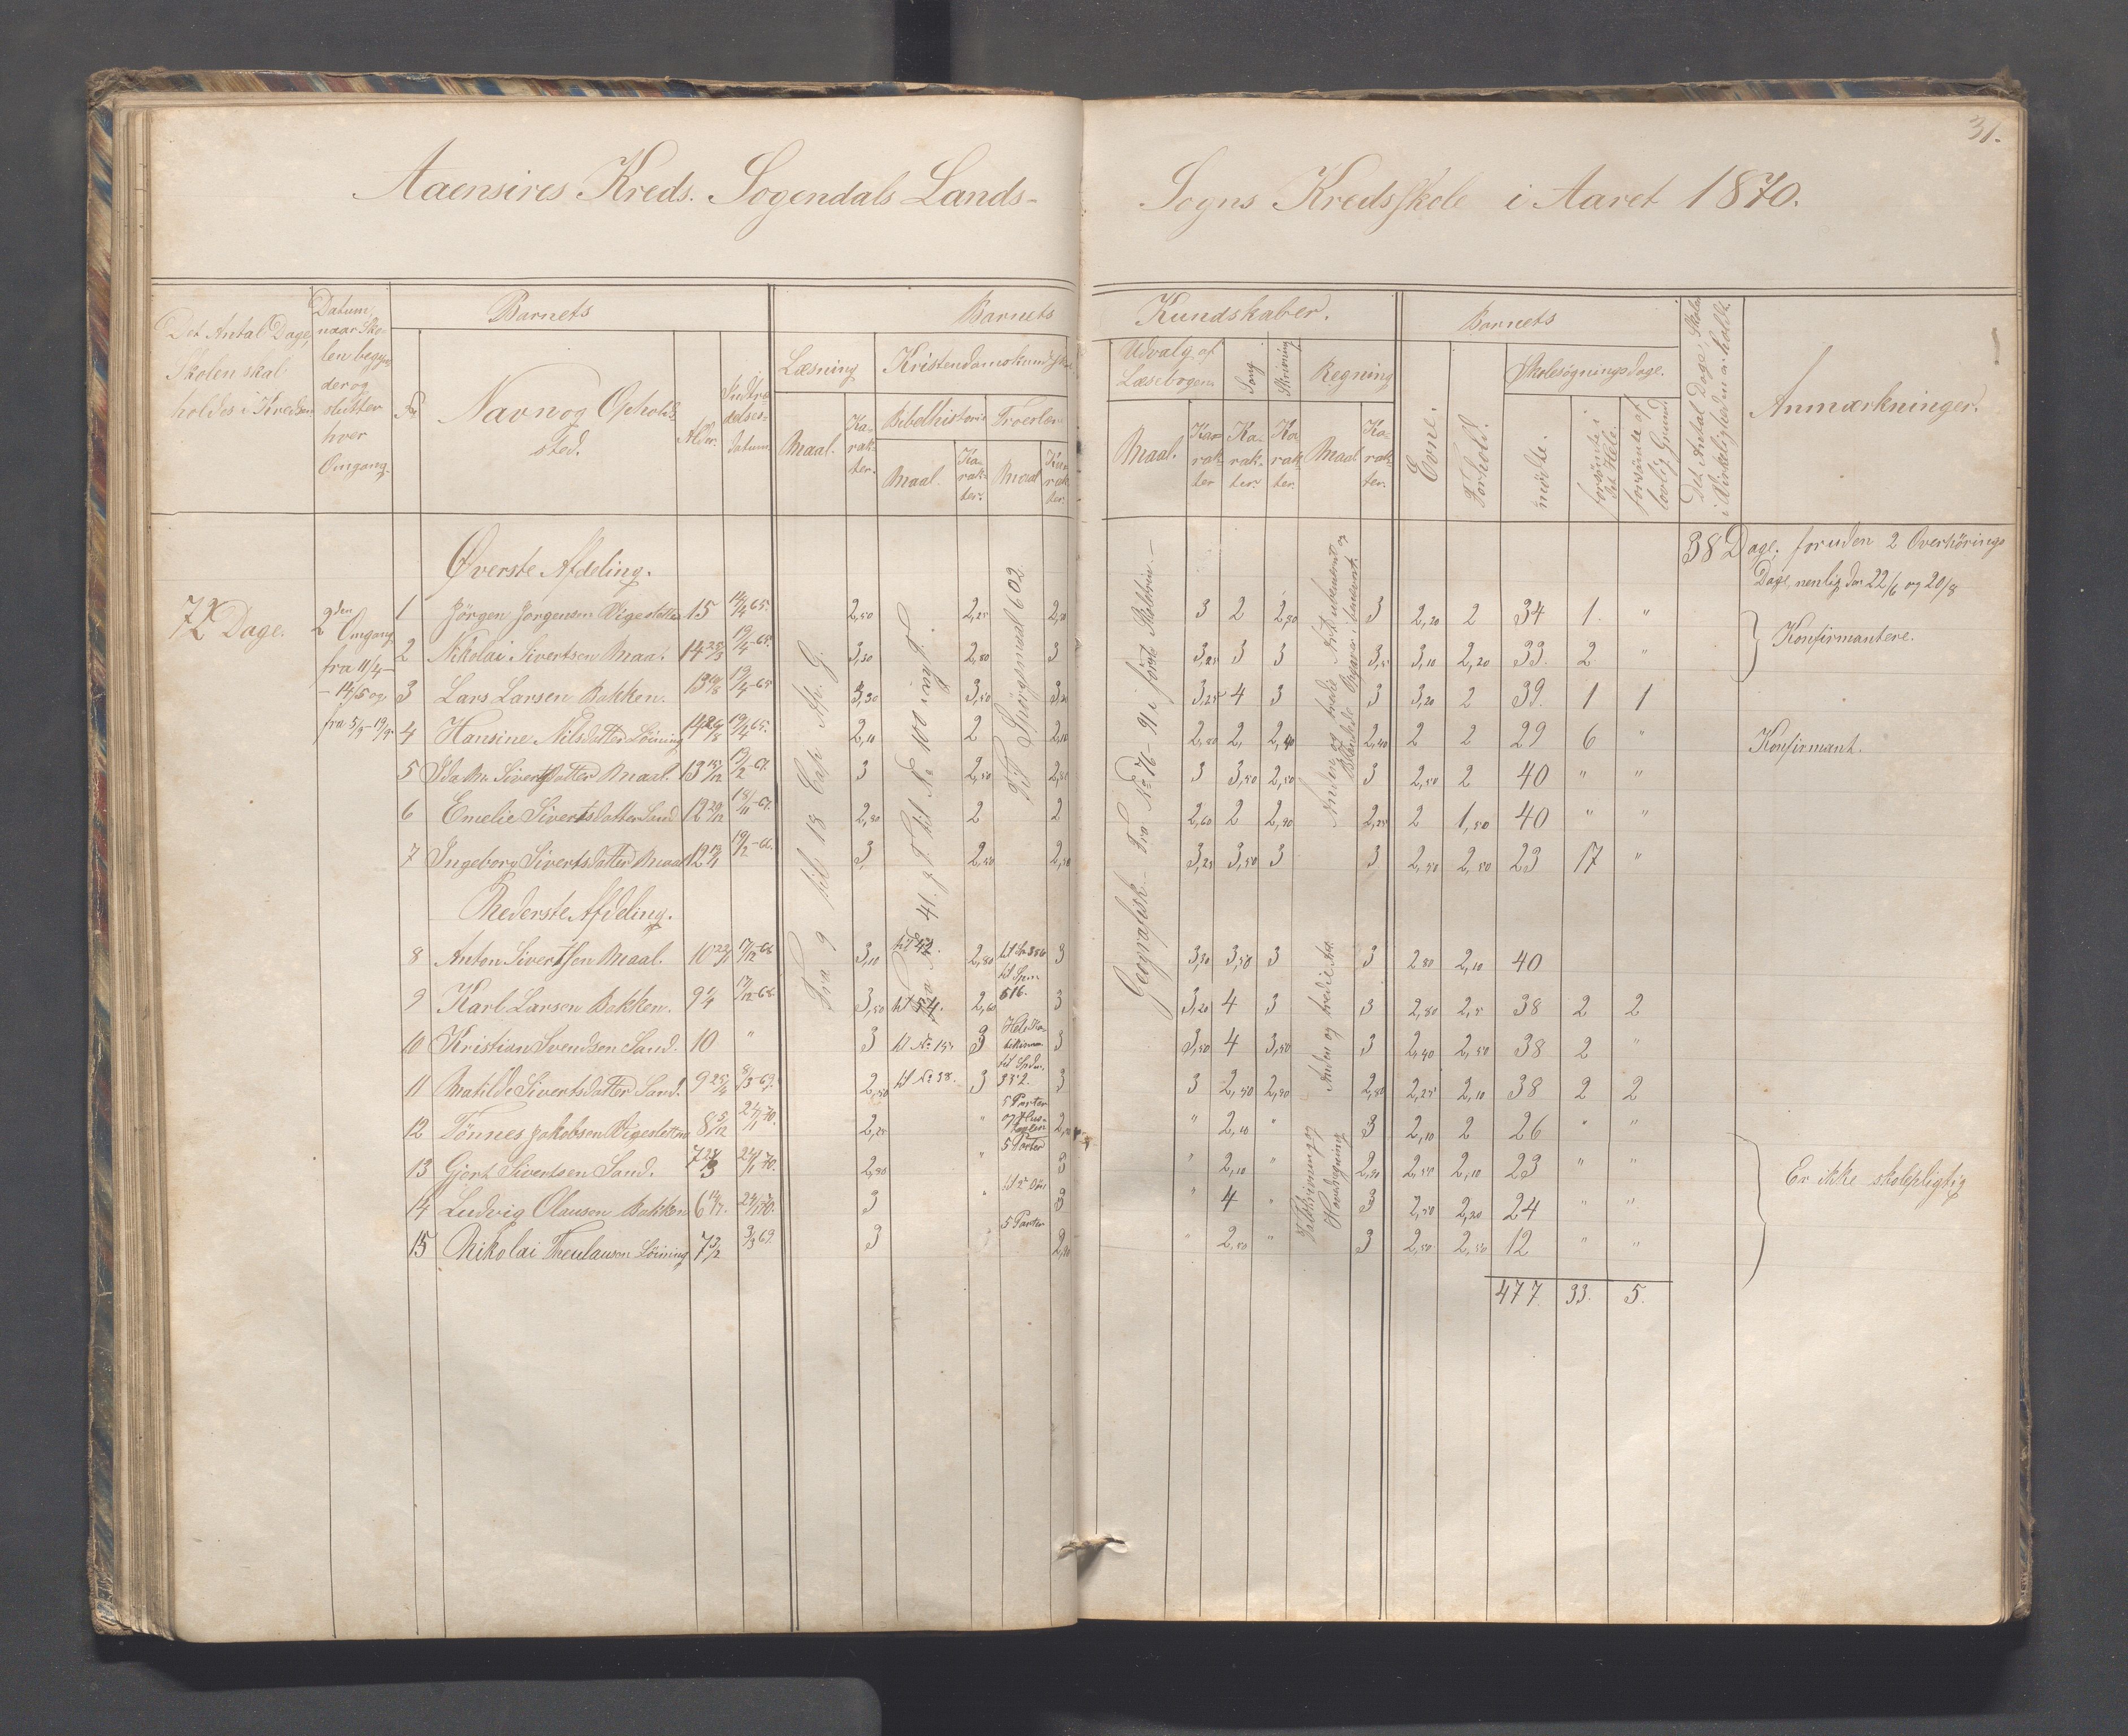 31.
Aaensires Kreds. Sogendals Lands-
Sogns Kredsskole i Aaret 1870.
Det Antal Dage, Skolen skal holdes i Kredsen
Datum, naar Skolen begynder og slutter hver Omgang.
Barnets
Nr
Navn og Opholdssted.
Alder.
Indtrædelses-Datum.
Barnets Kundskaber.
Læsning
Maal.
Karakter.
Kristendomskundskab
Bibelhistorie
Maal.
Karakter.
Troeslære
Maal
Karakter
Udvalg af Læsebogen
Maal.
Karakter
Sang
Karakter.
Skrivning
Karakter.
Regning
Maal
Karakter.
Barnets
Evne.
Forhold.
Skolesøgningsdage.
mødte.
forsømte i det Hele.
forsømte af lovlig Grund.
Det Antal Dage, Skolen i Virkeligheden er holdt.
Anmærkninger.
72 Dage.
2den Omgang
fra 11/4-
-14/5 og
fra 5/9-19/9
Øverste Afdeling.
38 Dage, foruden 2 Overhørings
Dage, nemlig den 22/6 og 20/8
1 Jörgen Jorgensen Vigesletten 15 14/4 65. 2,50 2,25 3 2 2,80 3 2,20 2 34 1. "
2 Nikolai Sivertsen Maal. 14 19/4-65. 3,30 2,80 3 3,25 3 3 3,10 2,20 33. 2 "
Konfirmantere.
3 Lars Larsen Bakken. 13 19/4-65 3,30 3,50 3,25 4 3 3 3,20 2 39. 1 1
4 Hansine Nilsdatter Löining 14 26/8 19/4 65. 2,10 2 2,10 2,80 2, 2,40 2,40 2 2 29 6 "
Konfirmant.
5 Ida Ma. Sivertsdatter Maal. 13 3 2,50 3 3,50 2,50 3 2,50 2 40 " "
6 Emelie Sivertsdatter Sand 12 29/12 2,80 2 2 2,60 2 2,80 2,25 2 1,50 40 " "
7 Ingeborg Sivertsdatter Maal 12 19/2-66. 3 2,50 2,50 3,25 3,50 3 3 2,50 2,50 23 17 "
Fra 9 til 13 Cap. Ap. G.
til No 100 incl.
Til Spørgsmaal 602
Geografisk.- Fra No 76 - 91 i første Skoletrin.-
Nederste Afdeling.
8 Anton Sivertsen Maal. 10 17/12-68 3,10 2,80 3 3,30 3,50 3 3 2,80 2,10 40
9 Karl Larsen Bakken. 9 1/4 17/12-68. 3,50 til 54. 2,60 616. 3 3,20 4 3 3 2,80 2,5 38 2 2
10 Kristian Svendsen Sand. 10 " 3 til No 15. 3 3 3,50 4 3,50 3 2,40 2,50 38 2 "
11 Matilde Sivertsdatter Sand. 9 25/4 8/3-69. 2,50 til No 38. 3 352. 3 3 2,50 2,50 2,80 2,25 2,10 38 2 2
12 Tönnes Jakobsen Vigesletten 8 5/12 24/1-70. 2,25 " 5 Parter " 2,10 " 3 2,10 2 26 " "
13 Gjert Sivertsen Sand. 7 24/1 70. 2,80 " 5 Parter 3 " 2,10 " 2,80 2,50 2,10 23 " "
14 Ludvig Olausen Bakken 6 24/1 70. 3 " 3 " 4 " 3 2,50 2,20 24 " "
15 Nikolai Theulausen Löining 7 3/2 3/3 69. 3 5 Parter " 2,50 " 3 2,50 2,50 12 " "
Anden og tredie Art.
Er ikke skolepligtig
477. 33. 5.